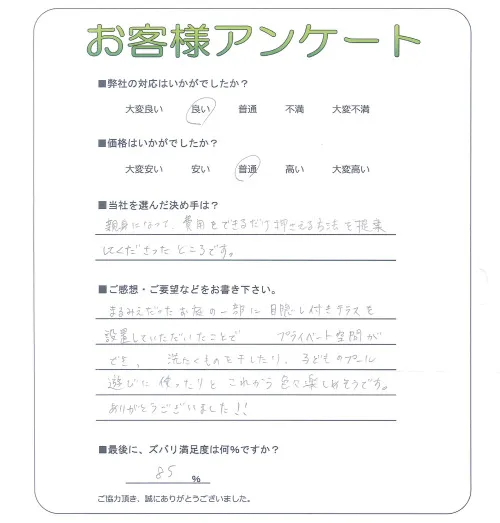 お客様アンケート
■弊社の対応はいかがでしたか？
大変良い 良い 普通 不満 大変不満
■価格はいかがでしたか？
大変安い 安い 普通 高い 大変高い
■当社を選んだ決め手は？
親身になって、費用をできるだけ押さえる方法を提案
してくださったところです。
■ご感想・ご要望などをお書き下さい。
まるみえだったお庭の一部に目隠し付きテラスを
設置していただいたことで プライベート空間が
でき、 洗たくものを干したり、子どものプール
遊びに使ったりと これから色々楽しめそうです。
ありがとうございました!!
■最後に、ズバリ満足度は何％ですか？
85 ％
ご協力頂き、誠にありがとうございました。